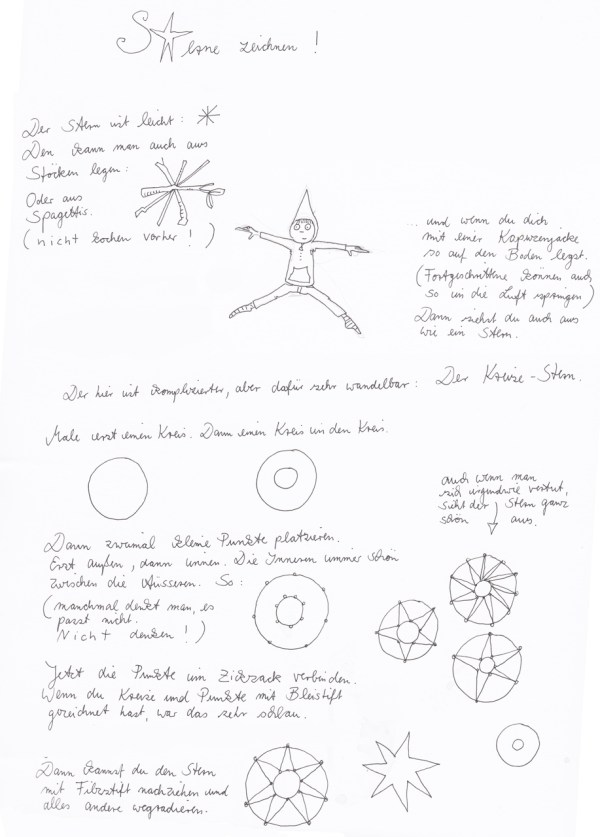 Sterne zeichnen !
Der Stern ist leicht :
Den kann man auch aus
Stöcken legen :
Oder aus
Spagettis.
( nicht kochen vorher ! )
... und wenn du dich
mit einer Kapuzenjacke
so auf den Boden legst.
(Fortgeschrittene können auch
so in die Luft springen)
Dann siehst du auch aus
wie ein Stern.
Der hier ist komplizierter, aber dafür sehr wandelbar : Der Kreise-Stern.
Male erst einen Kreis. Dann einen Kreis in den Kreis.
auch wenn man
sich irgendwie vertut,
sieht der Stern ganz
schön aus.
Dann zweimal kleine Punkte platzieren.
Erst außen, dann innen. Die Inneren immer schön
zwischen die Äusseren. So :
(manchmal denkt man, es
passt nicht.
Nicht denken ! )
Jetzt die Punkte im Zickzack verbinden.
Wenn du Kreise und Punkte mit Bleistift
gezeichnet hast, war das sehr schlau.
Dann kannst du den Stern
mit Filzstift nachziehen und
alles andere wegradieren.